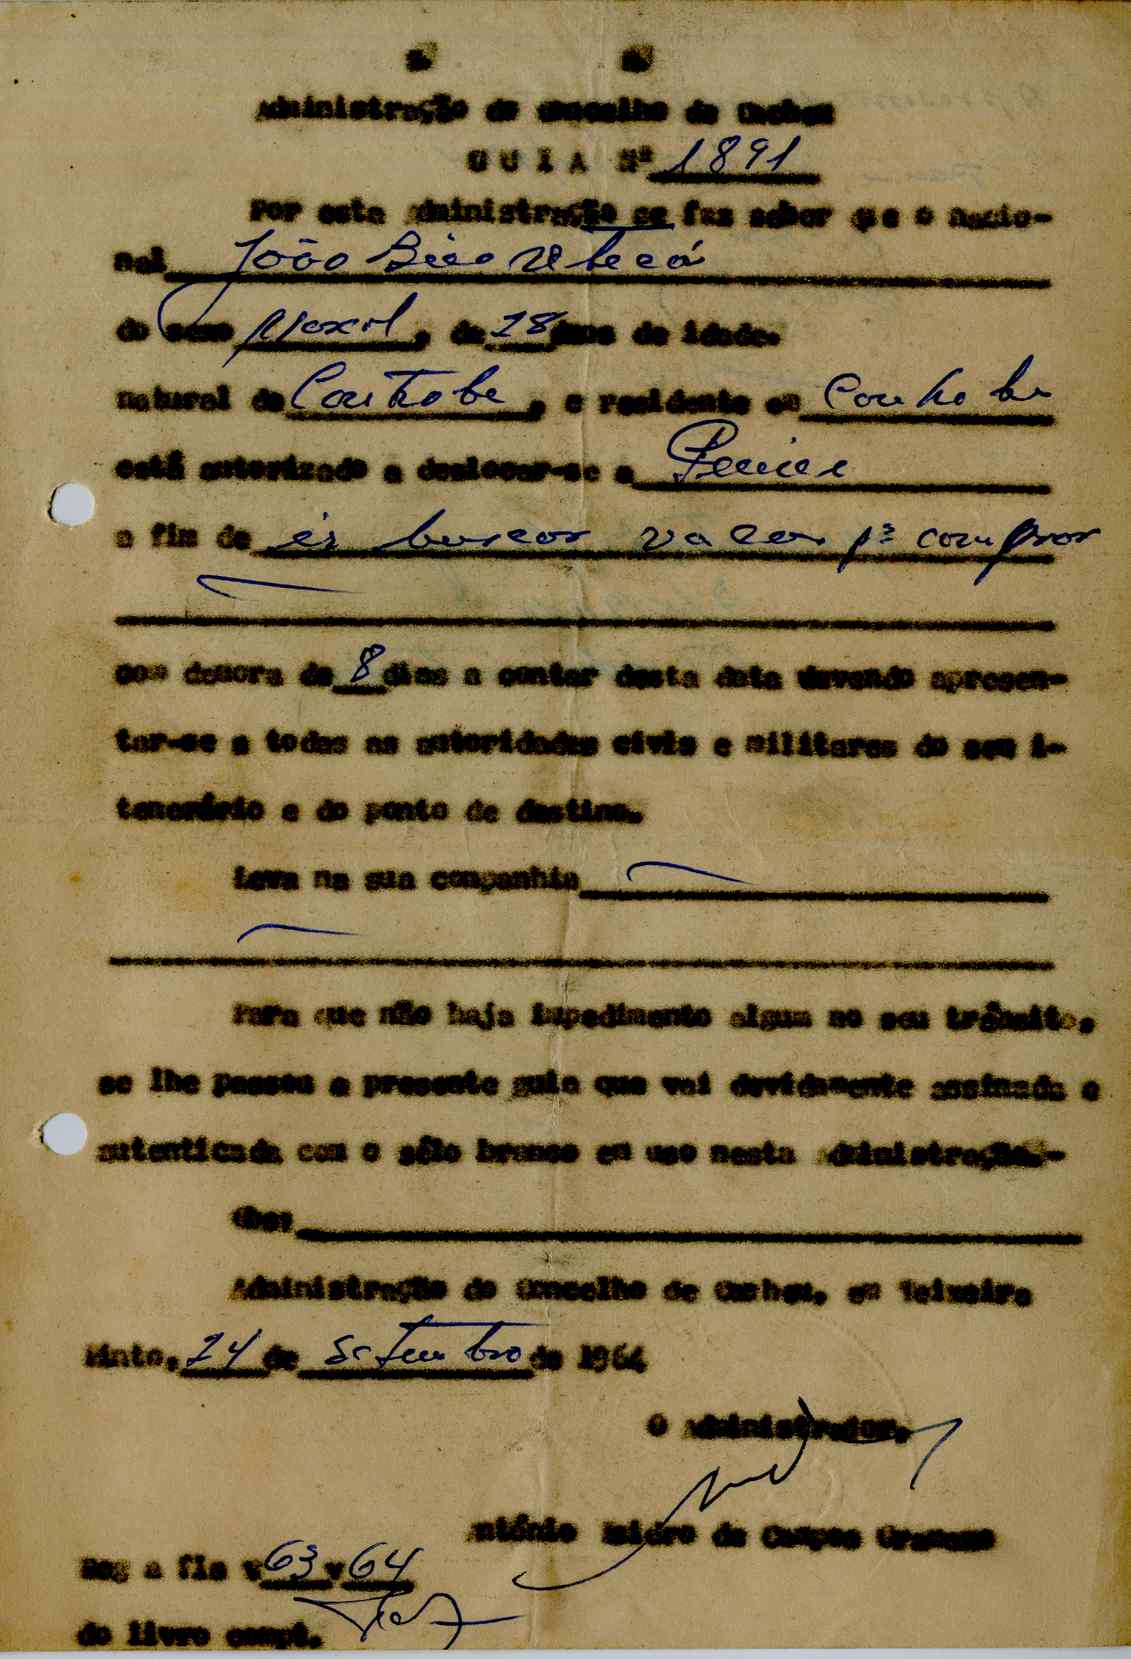 S. R.
Administração do Concelho de Cacheu
GUIA Nº 1891
Por esta Administração se faz saber que o nacio-
nal João
do sexo , de 28 anos de idade.
natural de , e residente em
está autorizado a deslocar-se a
a fim de ir buscar vacas pª comprar
com demora de 8 dias a contar desta data devendo apresen-
tar-se a todas as autoridades civis e militares do seu i-
tenerário e do ponto de destino.
Leva na sua companhia
Para que não haja impedimento algum no seu trânsito,
se lhe passou a presente guia que vai devidamente assinada e
autenticada com o sêlo branco em uso nesta Administração.-
Obs:
Administração do Concelho de Cacheu, em Teixeira
Pinto, 24 de Setembro de 1964
O Administrador,
António Isidro de Campos
Reg a fls v 63 v 64
do livro compt.